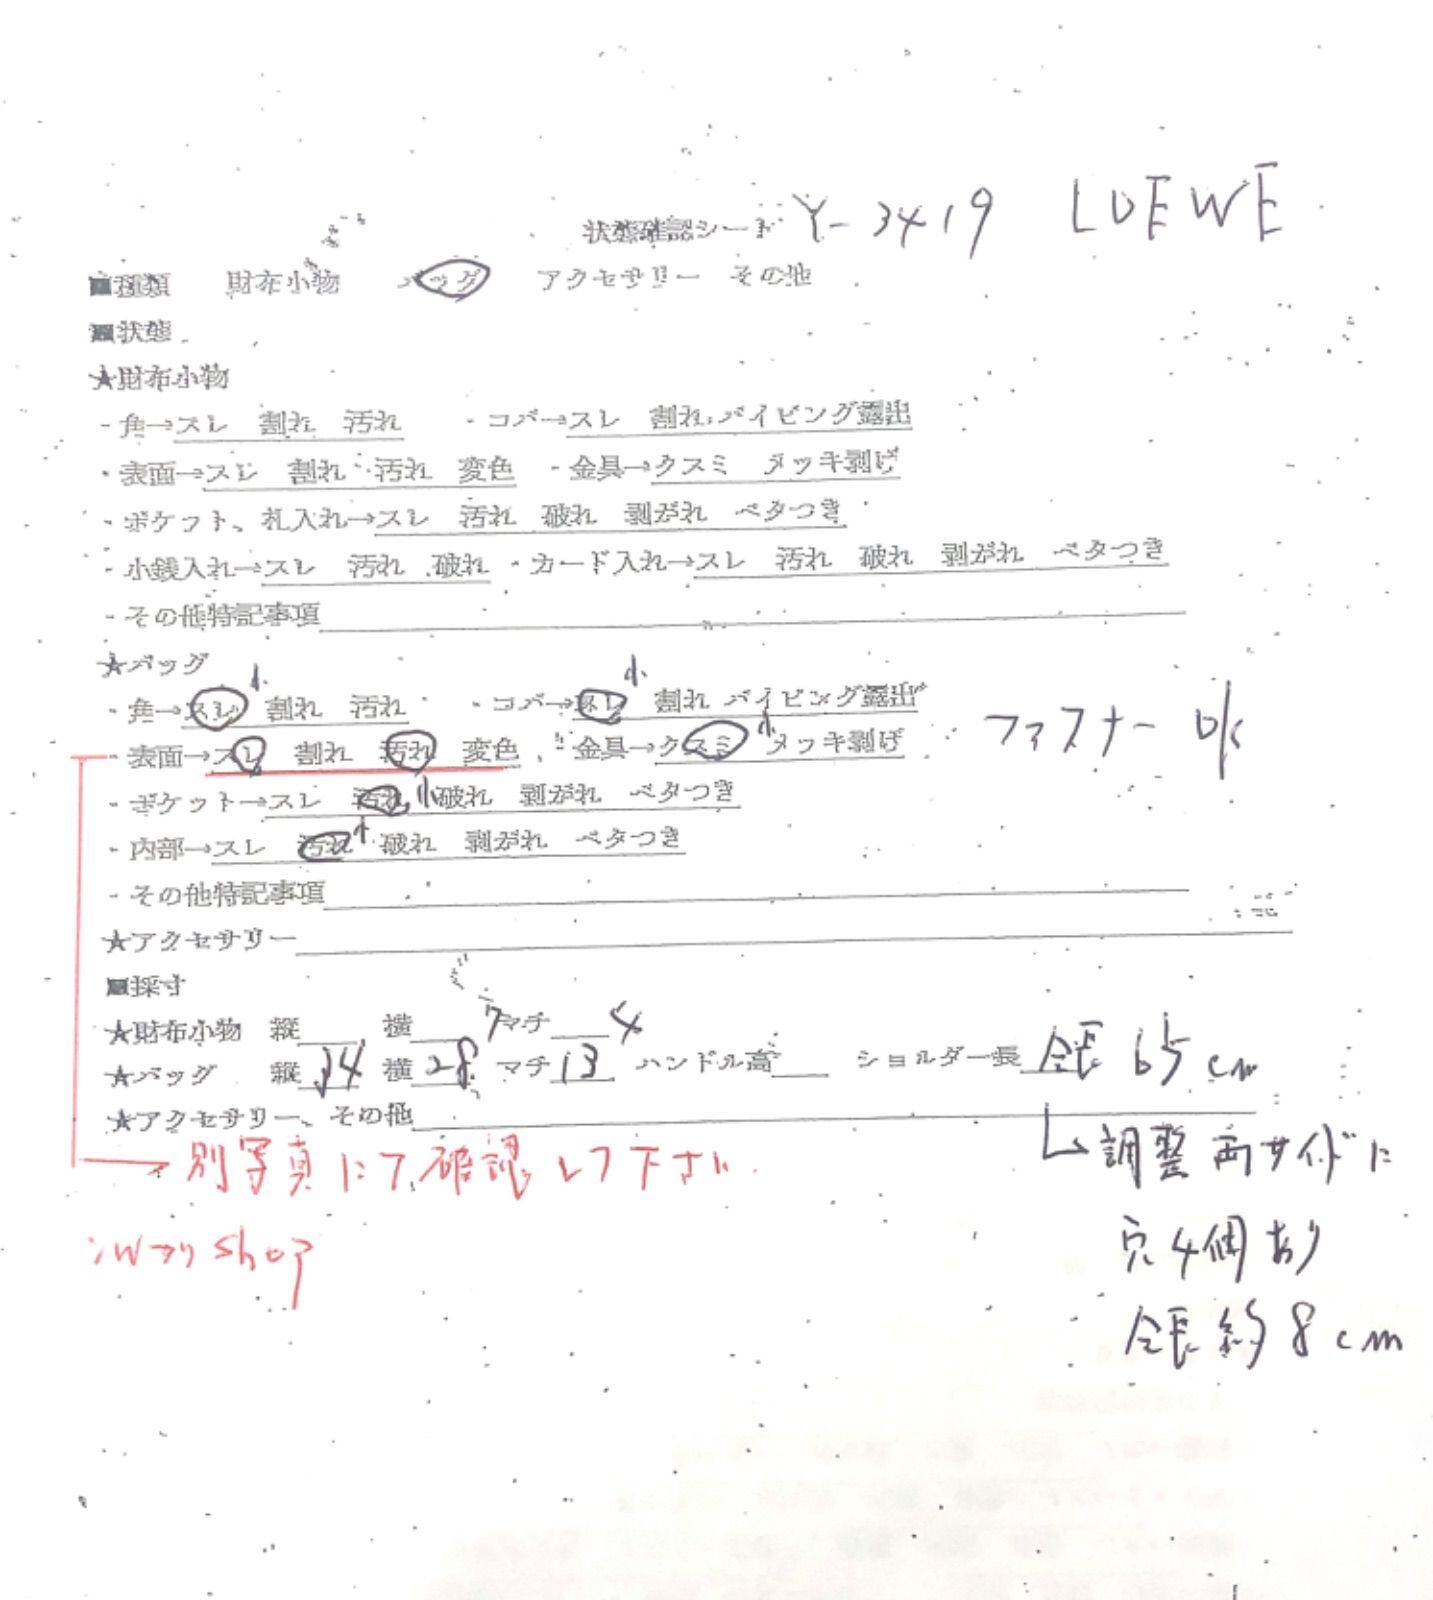 状態確認シート Y-3419 LOEWE
■種類 財布小物 バッグ アクセサリー その他
■状態
★財布小物
・角→スレ 割れ 汚れ ・コバ→スレ 割れ パイピング露出
・表面→スレ 割れ 汚れ 変色 ・金具→クスミ メッキ剥げ
・ポケット、札入れ→スレ 汚れ 破れ 剥がれ ベタつき
・小銭入れ→スレ 汚れ 破れ ・カード入れ→スレ 汚れ 破れ 剥がれ ベタつき
・その他特記事項
★バッグ
・角→スレ 小 割れ 汚れ ・コバ→スレ 小 割れ パイピング露出
・表面→スレ 割れ 汚れ 変色 ・金具→クスミ 小 メッキ剥げ ファスナー ok
・ポケット→スレ 汚れ 小 破れ 剥がれ ベタつき
・内部→スレ 汚れ 小 破れ 剥がれ ベタつき
・その他特記事項
★アクセサリー
■採寸
★財布小物 縦 横 7 マチ 4
★バッグ 縦 34 横 28 マチ 13 ハンドル高 ショルダー長 全長 65cm
★アクセサリー、その他
別写真にて確認して下さい 調整 両サイドに
shop 穴4個あり
全長約8cm